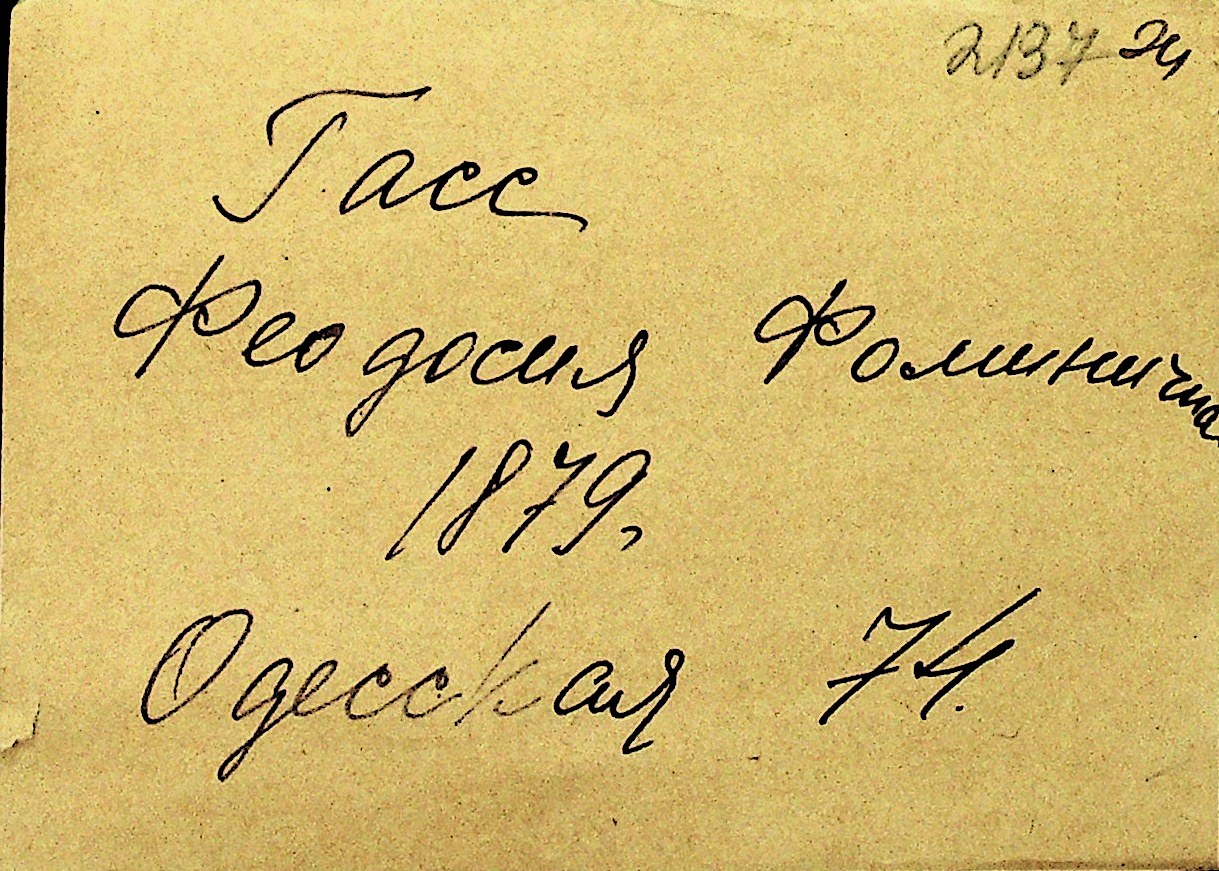 2137 эч
Гасс
Феодосия Фоминична
1879,
Одесская 74.